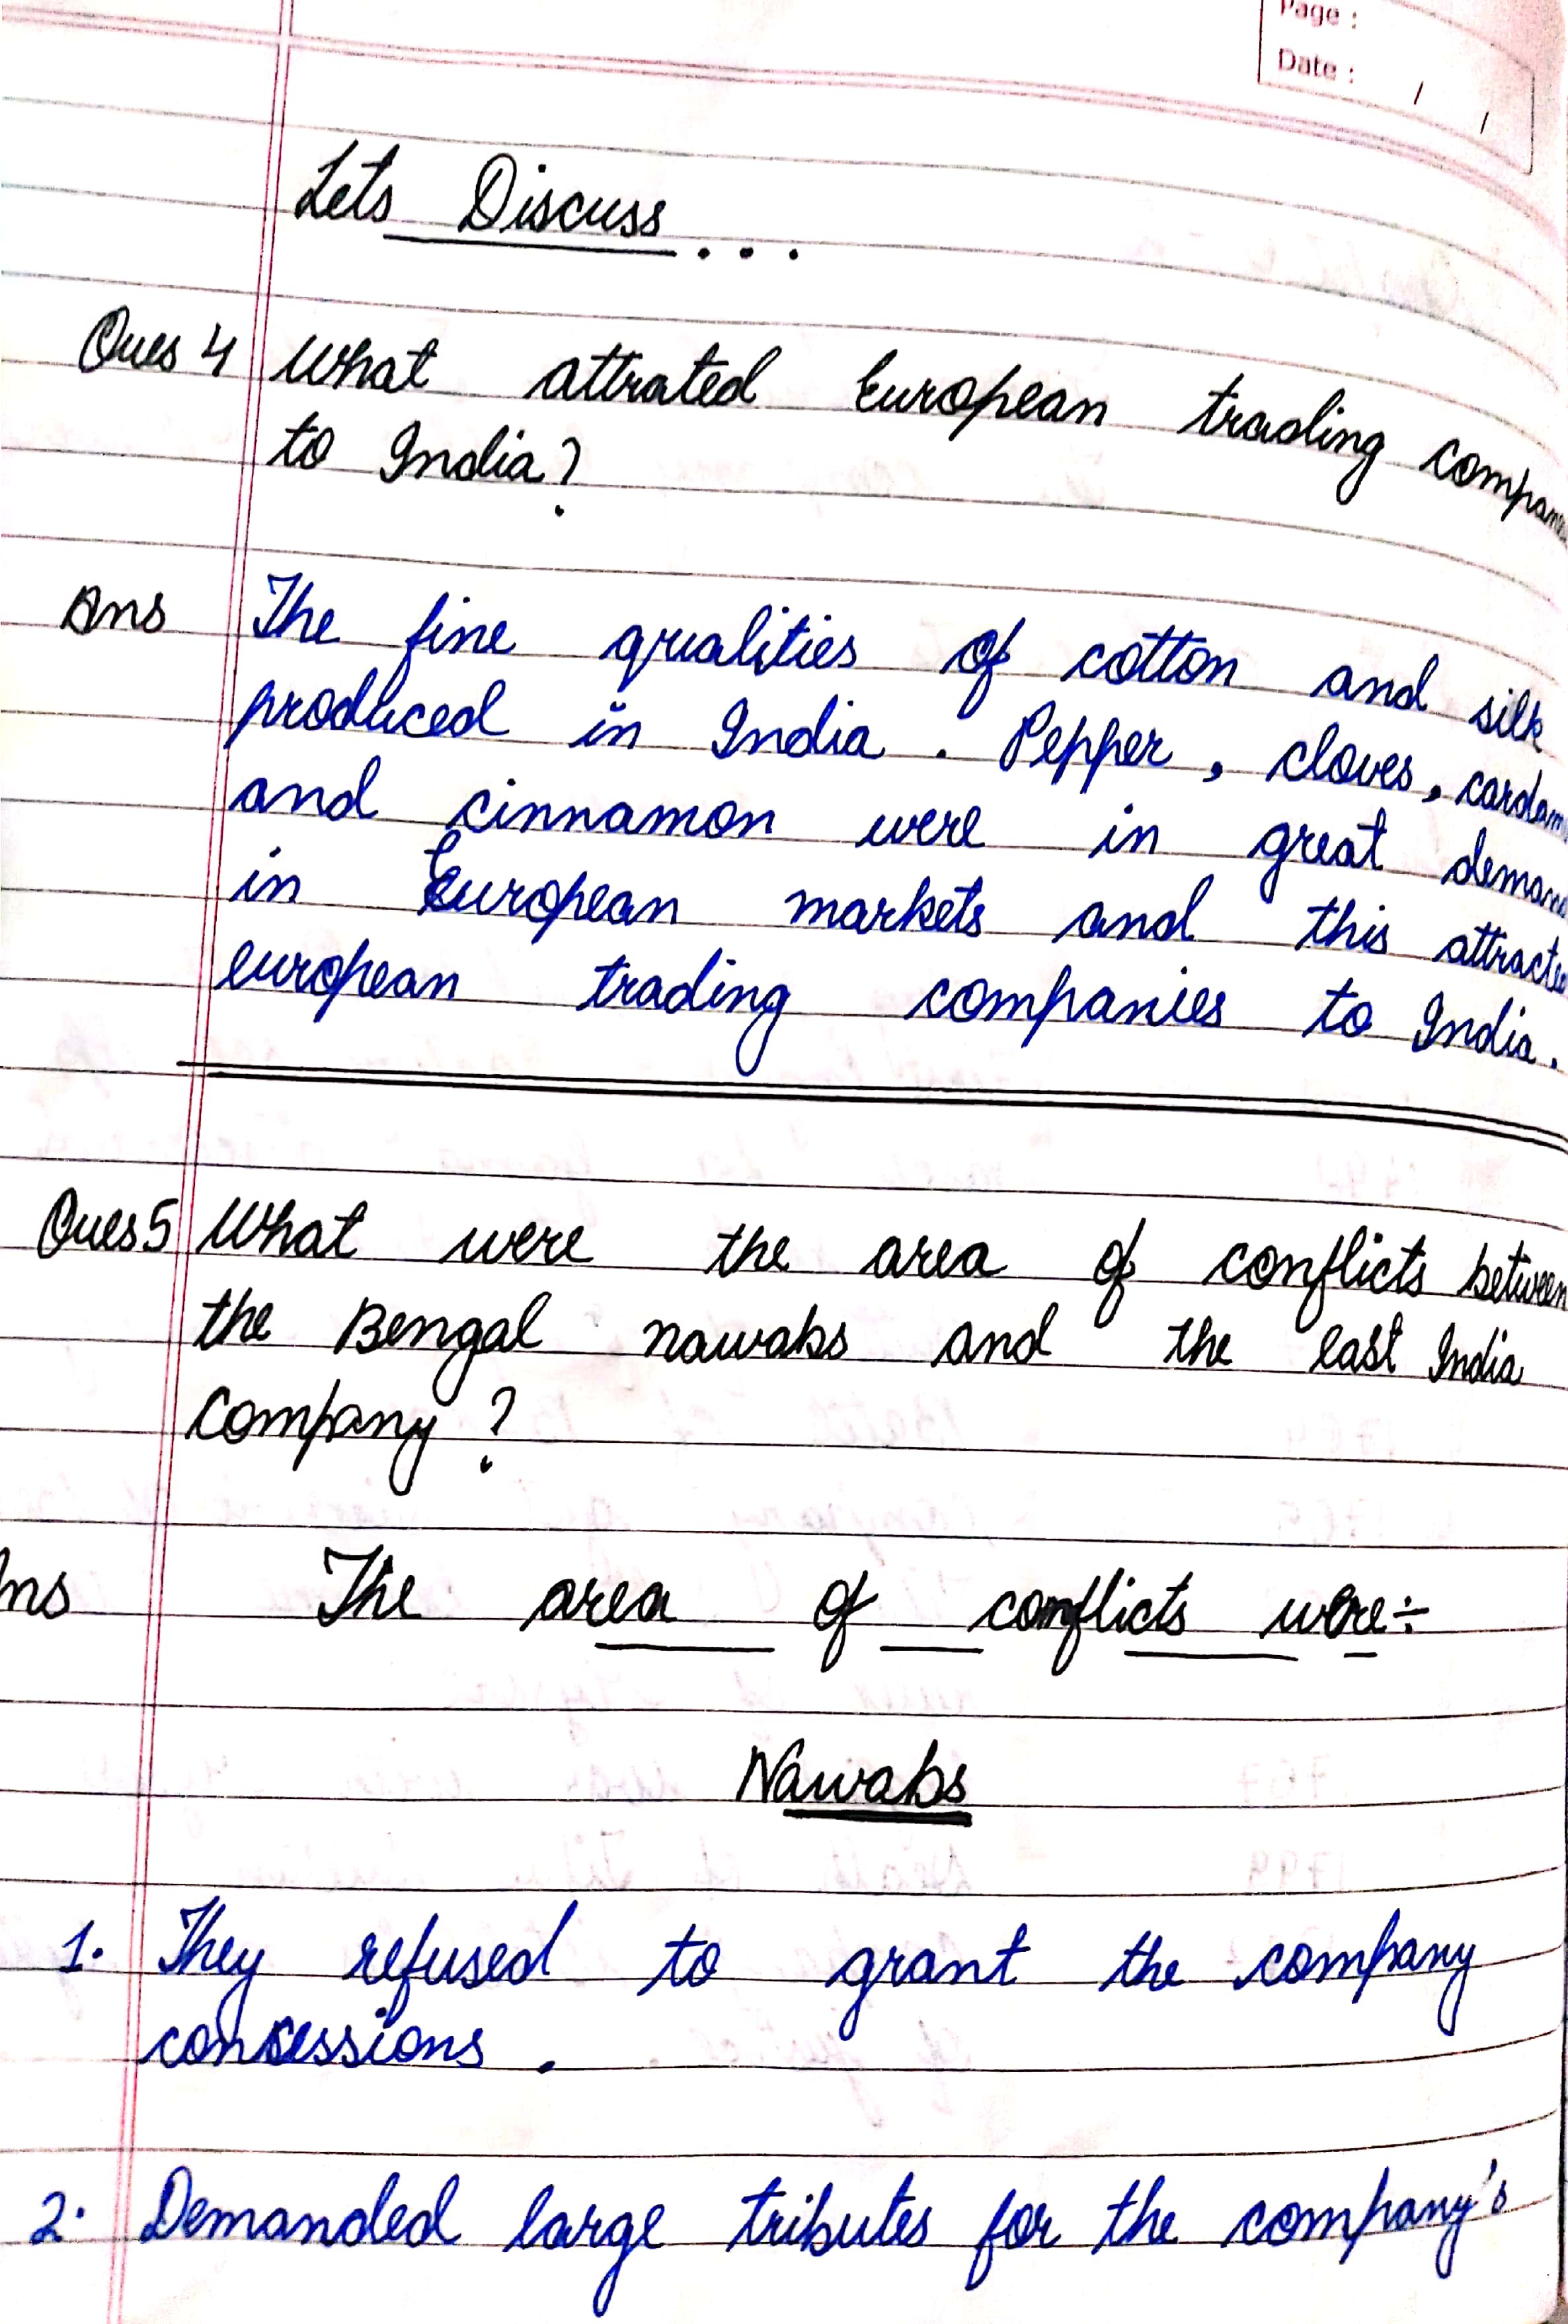 Page :
Date : / /
Lets Discuss...
Ques 4 What attrated European trading
to India?
Ans The fine qualities of cotton and silk
produced in India. Pepper, cloves,
and cinnamon were in great
in European markets and this
european trading companies to India.
Ques 5 What were the area of conflicts between
the Bengal nawabs and the east India
company?
The area of conflicts were÷
Nawabs
1. They refused to grant the company
concessions.
2. Demanded large tributes for the company's